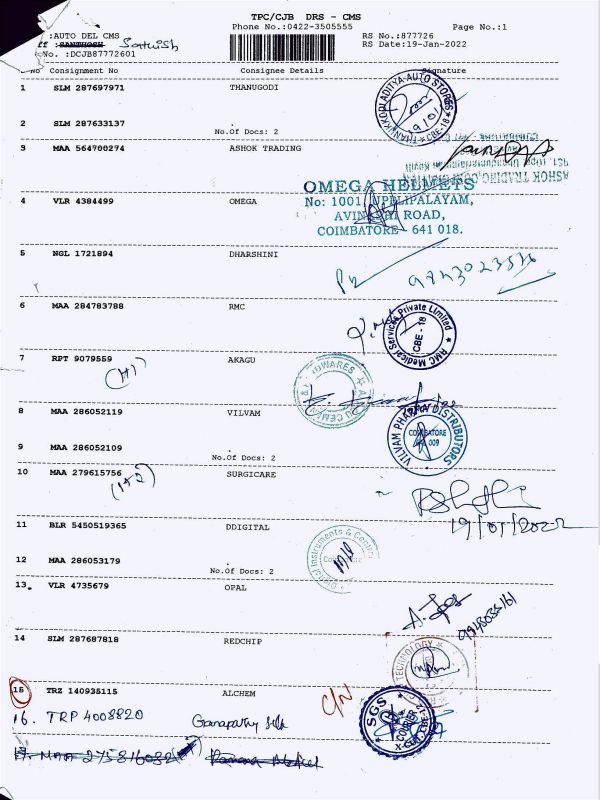 TPC/CJB DRS - CMS
Phone No.:0422-3505555 Page No.:1
:AUTO DEL CMS RS No.:877726
ff :SANTHOSH Satwish RS Date:19-Jan-2022
No. :DCJB87772601
No Consignment No Consignee Details Signature
1 SLM 287697971 THANUGODI
THANUKKODI ADITYA AUTO STORES
CBE-18
19/01
2 SLM 287633137
No.Of Docs: 2
3 MAA 564700274 ASHOK TRADING
ASHOK TRADING
OMEGA HELMETS
4 VLR 4384499 OMEGA
No: 1001, UPPILIPALAYAM,
AVINASHI ROAD,
COIMBATORE - 641 018.
5 NGL 1721894 DHARSHINI
6 MAA 284783788 RMC
RMC Medical Services Private Limited
CBE - 18
7 RPT 9079559 AKAGU
(H1)
8 MAA 286052119 VILVAM
VILVAM PHARMA DISTRIBUTORS
COIMBATORE
009
9 MAA 286052109
No.Of Docs: 2
10 MAA 279615756 SURGICARE
(1+2)
19/01/2022
11 BLR 5450519365 DDIGITAL
Digital Instruments & Control
12 MAA 286053179
No.Of Docs: 2
13 VLR 4735679 OPAL
14 SLM 287687818 REDCHIP
TECHNOLOGY
15 TRZ 140935115 ALCHEM
C/N
SGS
16. TRP 4008820 Ganapathy Silk
17. MAA 275816082